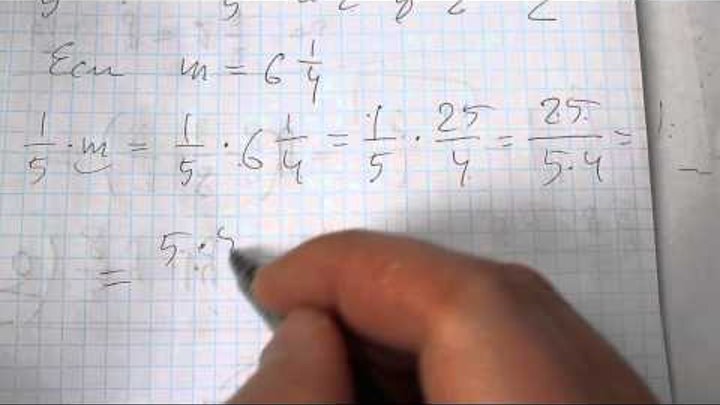 Если m = 6 1/4
1/5 · m = 1/5 · 6 1/4 = 1/5 · 25/4 = 25/(5·4) =
= 5 ·